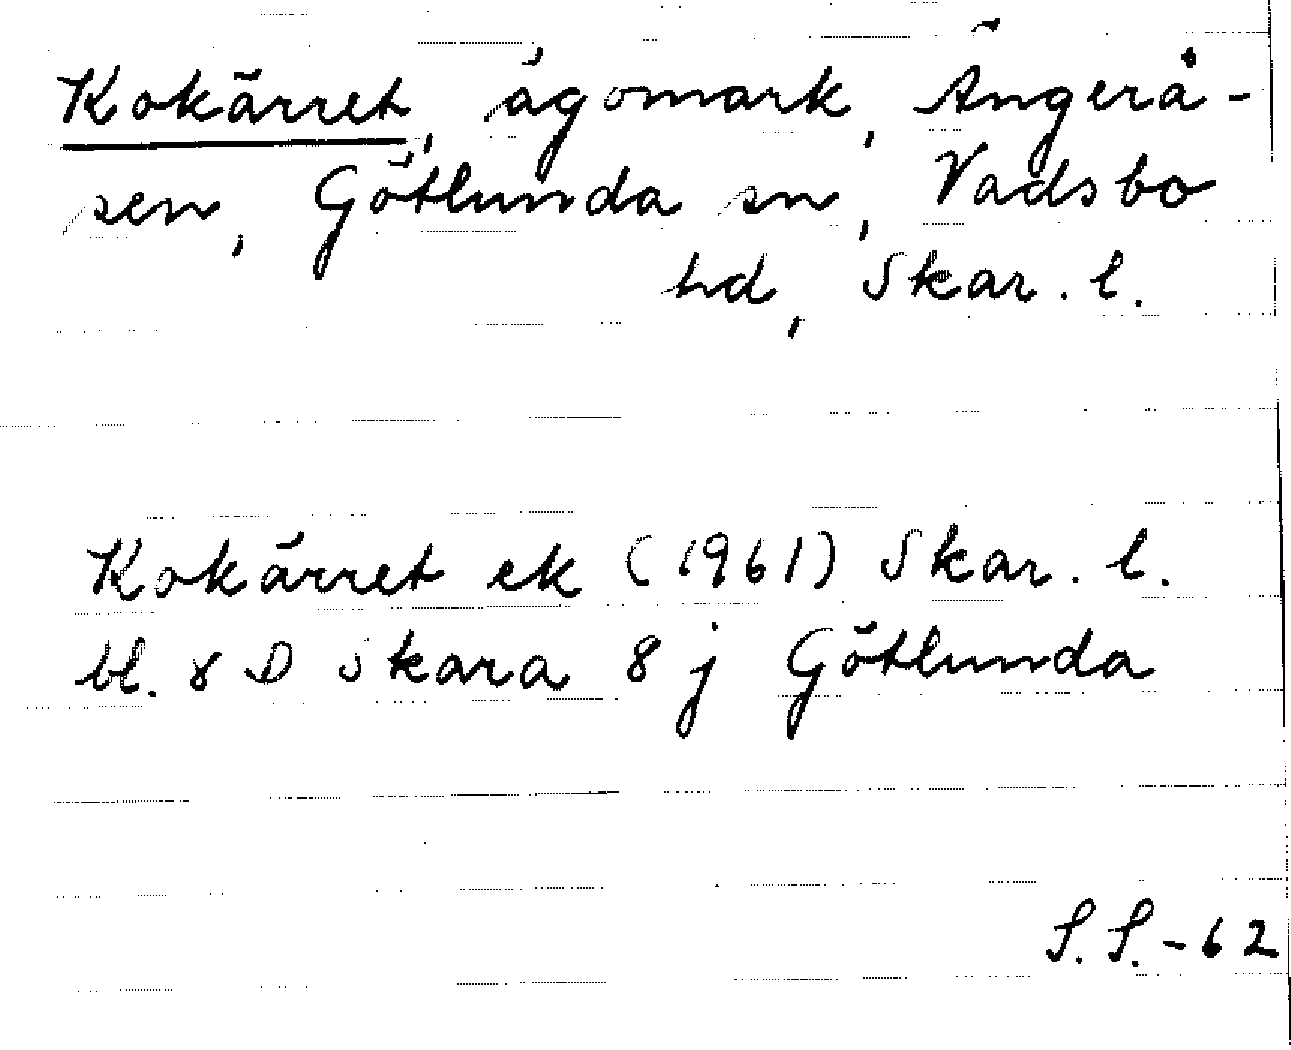 Kokärret, ägomark, Ängerå-
sen, Götlunda sn, Vadsbo
hd, Skar. l.
Kokärret ek (1961) Skar. l.
bl. 8 D Skara 8 j Götlunda
S. S. - 62